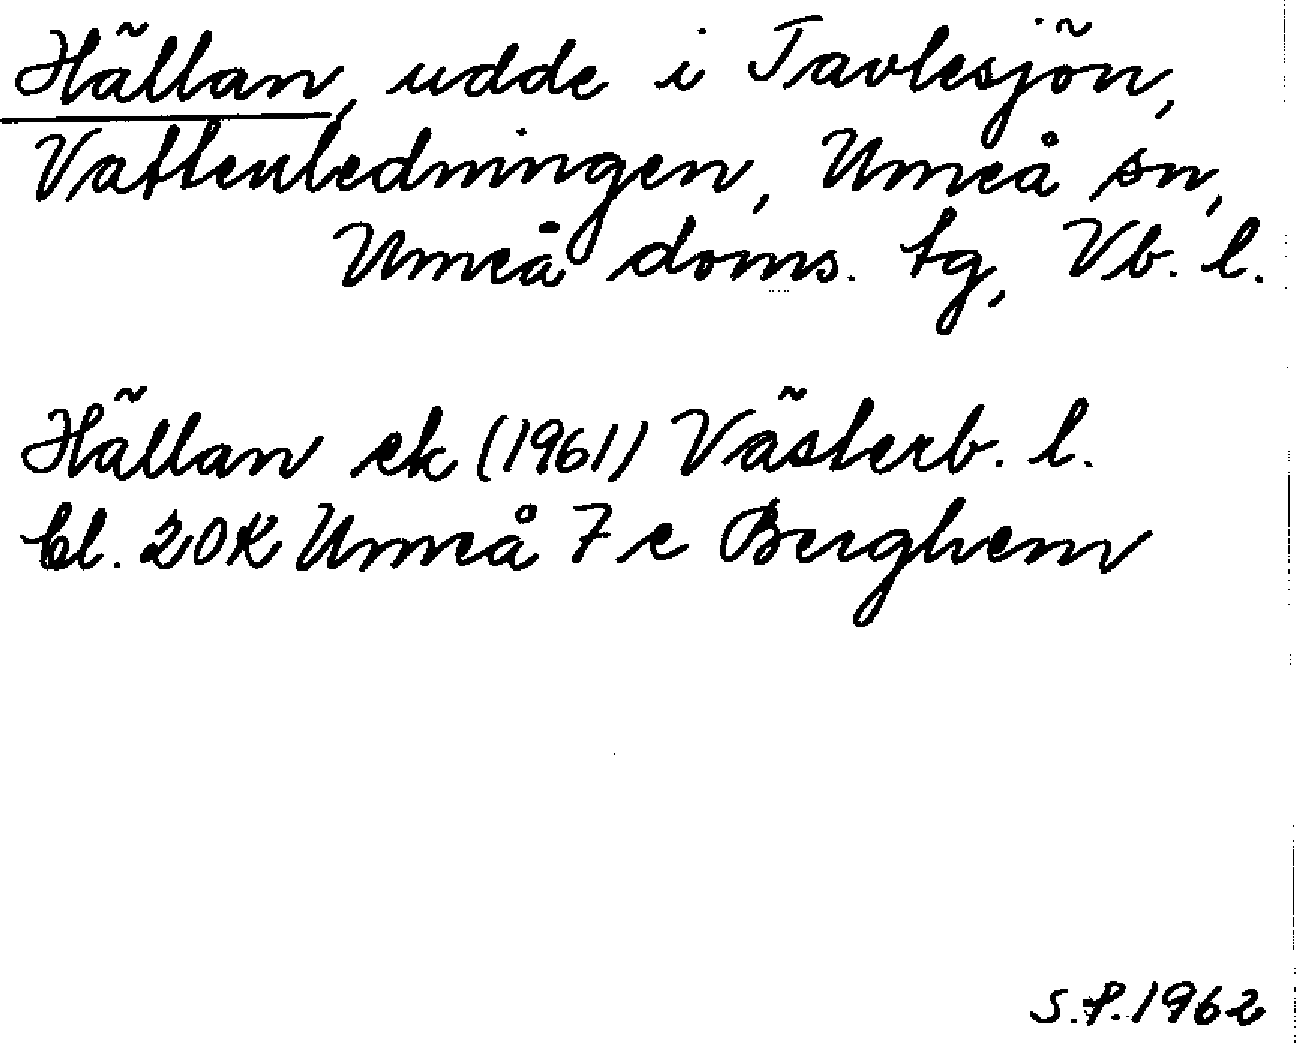 Hällan, udde i Tavlesjön,
Vattenledningen, Umeå sn,
Umeå doms. tg, Vb. l.
Hällan ek (1961) Västerb. l.
bl. 20K Umeå 7 e Berghem
S.P. 1962